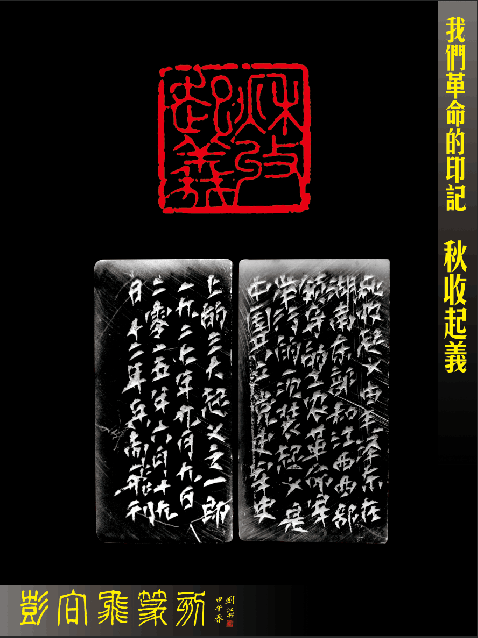 我們革命的印記 秋收起義
秋收起義
秋收起义由毛泽东在
湖南东部和江西西部
领导的工农革命军
举行的一次武装起义是
中国共产党史军史
上的三大起义之一即
一九二七年九月九日
二零一五年六月十九
彭向飛篆刻